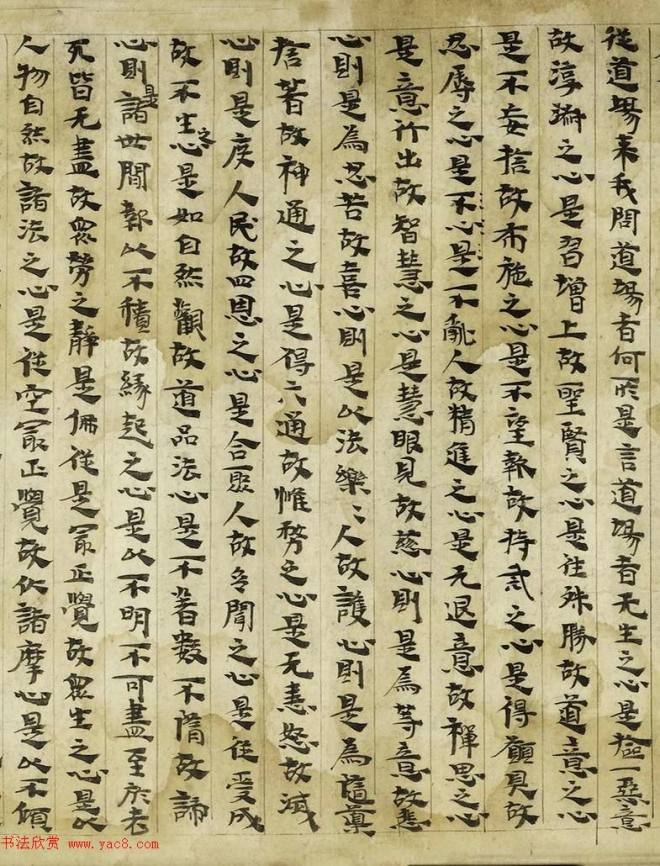 從道場来我問道場者何所是言道場者无生之心是檢一惡意
故淳淑之心是習增上故聖賢之心是往殊勝故道意之心
是不妄捨故布施之心是不望報故持戒之心是得願具故
忍辱之心是不心是不亂人故精進之心是无退意故禪思之心
是意行出故智慧之心是慧眼見故慈心則是為等意故悲
心則是為忍苦故喜心則是以法樂〻人故護心則是為
捨著故神通之心是得六通故惟務之心是无恚怒故滅
心則是度人民故四恩之心是合聚人故多聞之心是從受成
故不生之心是如自然觀故道品法心是不著數不墮故諦
心則是諸世間報以不積故緣起之心是以不明不可盡至於老
死皆无盡故眾勞之靜是佛從是冣正覺故眾生之心是以
人物自然故諸法之心是從空冣正覺故伏諸摩心是以不傾
书法欣赏 www.yac8.com